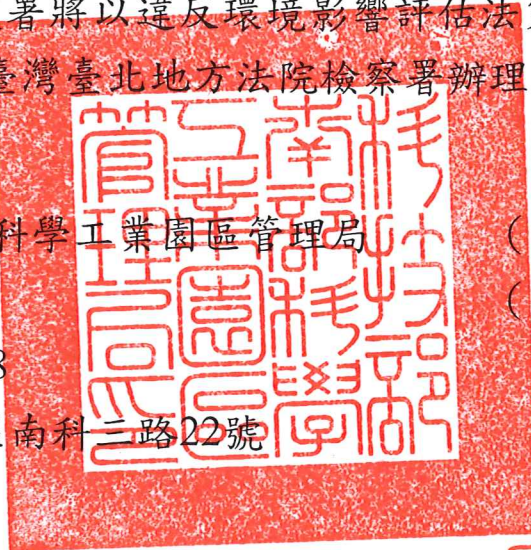 署將以違反環境影響評估法
臺灣臺北地方法院檢察署辦理
科學工業園區管理局 (
(
8
南科三路22號
科技部
南部科學
工業園區
管理局印